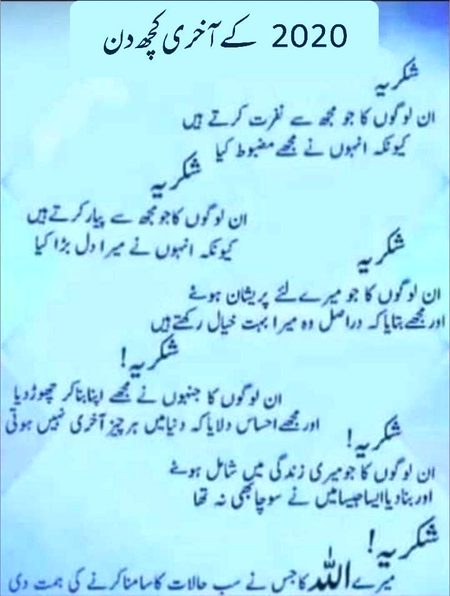 2020 کے آخری کچھ دن
شکریہ
ان لوگوں کا جو مجھ سے نفرت کرتے ہیں
کیونکہ انہوں نے مجھے مضبوط کیا
شکریہ
ان لوگوں کا جو مجھ سے پیار کرتے ہیں
کیونکہ انہوں نے میرا دل بڑا کیا
شکریہ
ان لوگوں کا جو میرے لئے پریشان ہوئے
اور مجھے بتایا کہ دراصل وہ میرا بہت خیال رکھتے ہیں
شکریہ!
ان لوگوں کا جنہوں نے مجھے اپنا بنا کر چھوڑ دیا
اور مجھے احساس دلایا کہ دنیا میں ہر چیز آخری نہیں ہوتی
شکریہ!
ان لوگوں کا جو میری زندگی میں شامل ہوئے
اور بنا دیا ایسا جیسا میں نے سوچا بھی نہ تھا
شکریہ!
میرے اللہ کا جس نے سب حالات کا سامنا کرنے کی ہمت دی